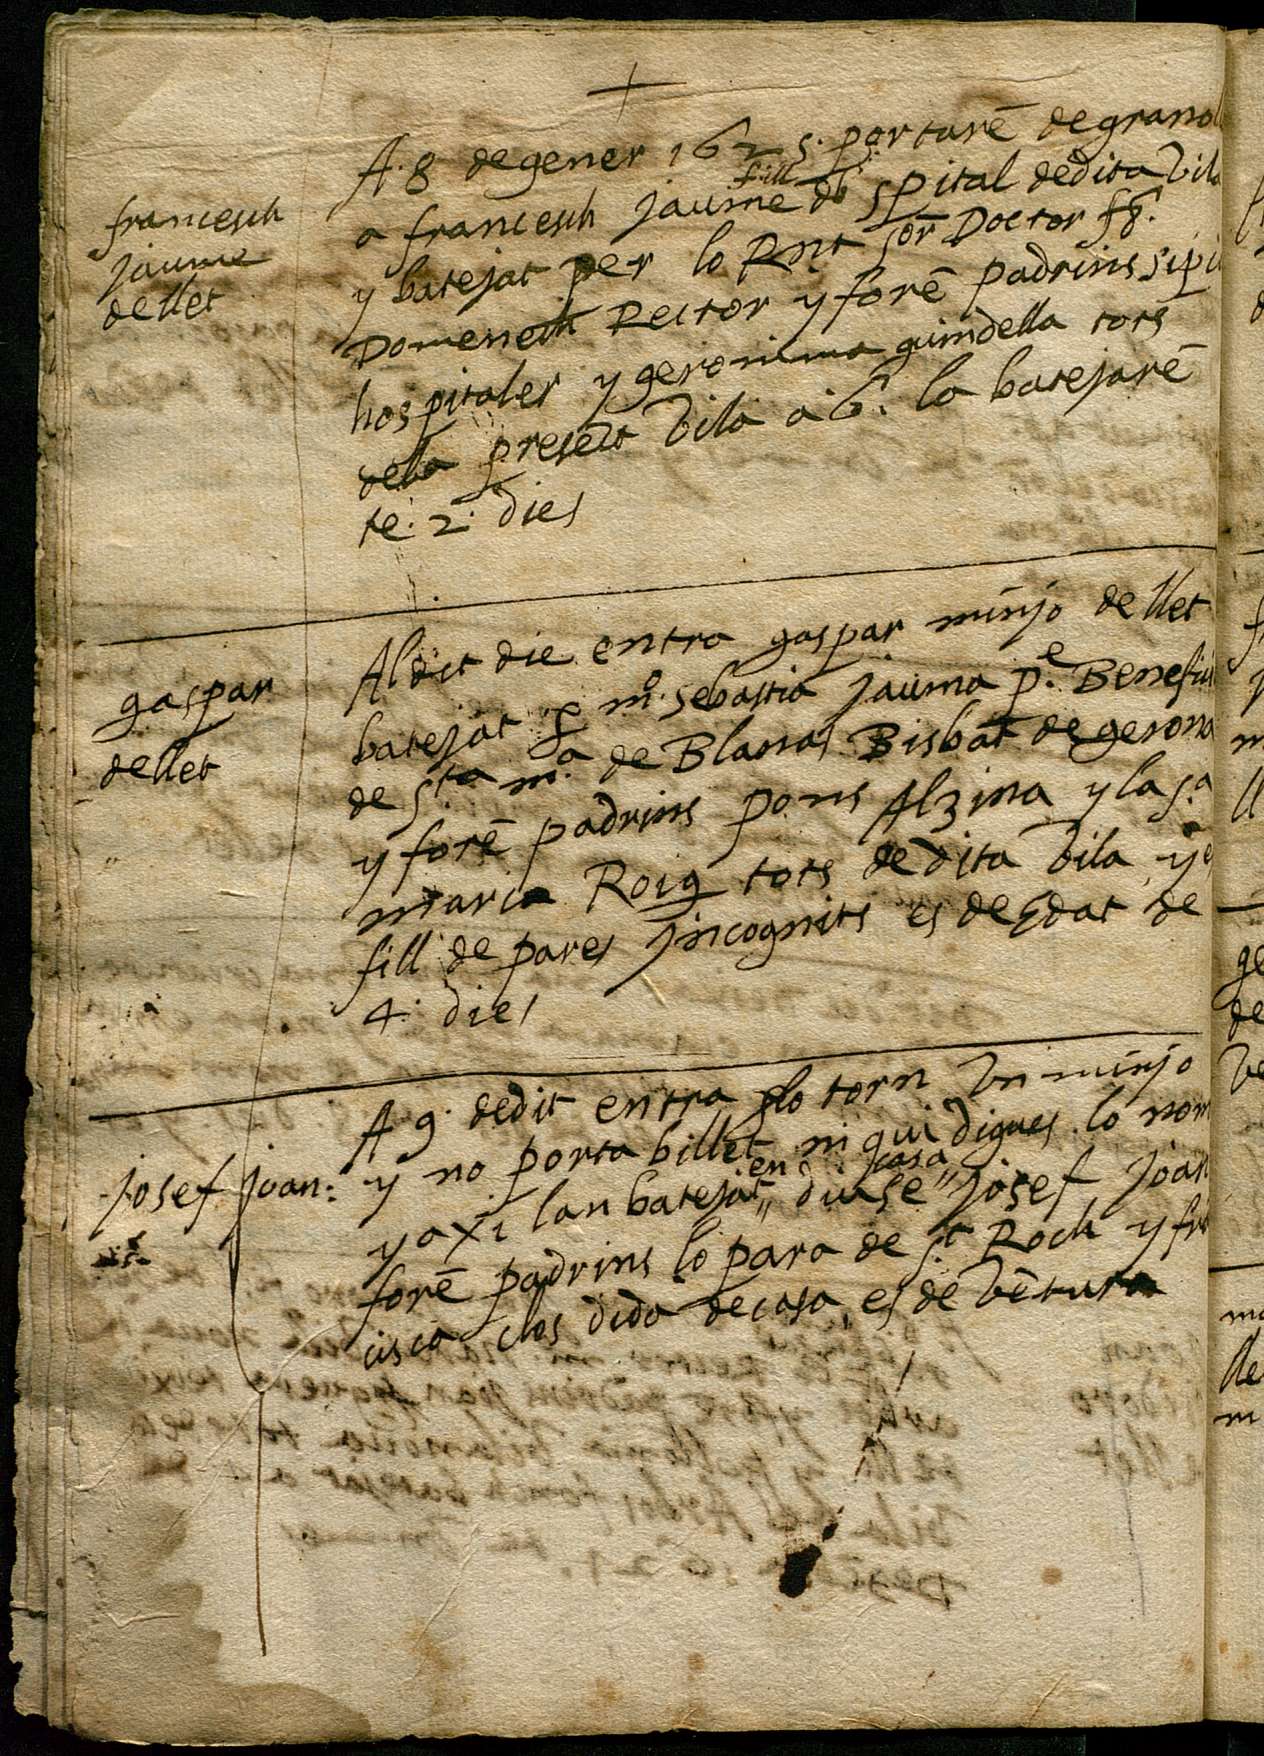 francesch
jaume
dellet
A. 8 degener 1625. portarē degranol
fill
a francesch jaume dl spital dedita Vila
y batejat per lo Rnt sor Doctor
Domenech Rector y forē padrins
hospitaler y geronima guindella tots
dela presēt Vila a 6. lo batejarē
te. 2. dies
gaspar
dellet
Al dit die entra gaspar minjo de llet
batejat p mº. sebastia jauma p.e Benefici
de Sta m.a de Blanas Bisbat de gerona
y forē padrins pons Alzina y la s.a
maria Roig tots de dita Vila y es
fill de pares jncognits es de Edat de
4. dies
josef joan:
A 9. dedit entra plo torn Vn minjo
y no porta billet ni qui digues lo nom
en casa
y axi lan batejat" diuse" josef joan
forē padrins lo para de St Roch y fra
cisca clos dida de casa, es de Vētura